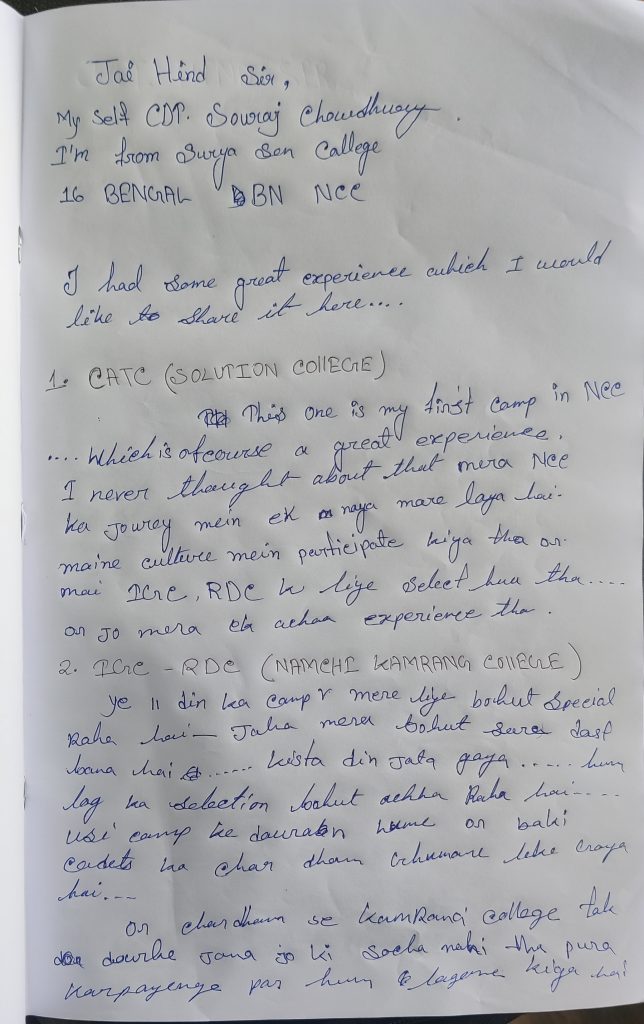 Jai Hind Sir,
My Self CDT. Souraj Chowdhury.
I'm from Surya Sen Callege
16 BENGAL BN NCC
I had some great experience which I would
like to share it here....
1. CATC (SOLUTION COllEGE)
This one is my first camp in NCC
.... Which is ofcourse a great experience.
I never thaught about that mera NCC
ka Jourey mein ek naya mare laya hai-
maine culture mein participate kiya tha or
mai IGC, RDC k liye select hua tha....
or jo mera ek achaa experience tha.
2. IGC - RDC (NAMCHI KAMRANG COllEGE)
ye 11 din ka camp mere liye bohut special
Raha hai— Jaha mera bohut sara dast
bana hai ...... kista din jata gaya ...... hum
log ka selection bohut achha Raha hai....
usi camp ke dauraan hume or baki
cadets ka char dham ghumane leke
hai...
Or chardham se kamRang college tak
daurke jana jo ki socha nahi tha pura
karpayenge par hum kiya hai